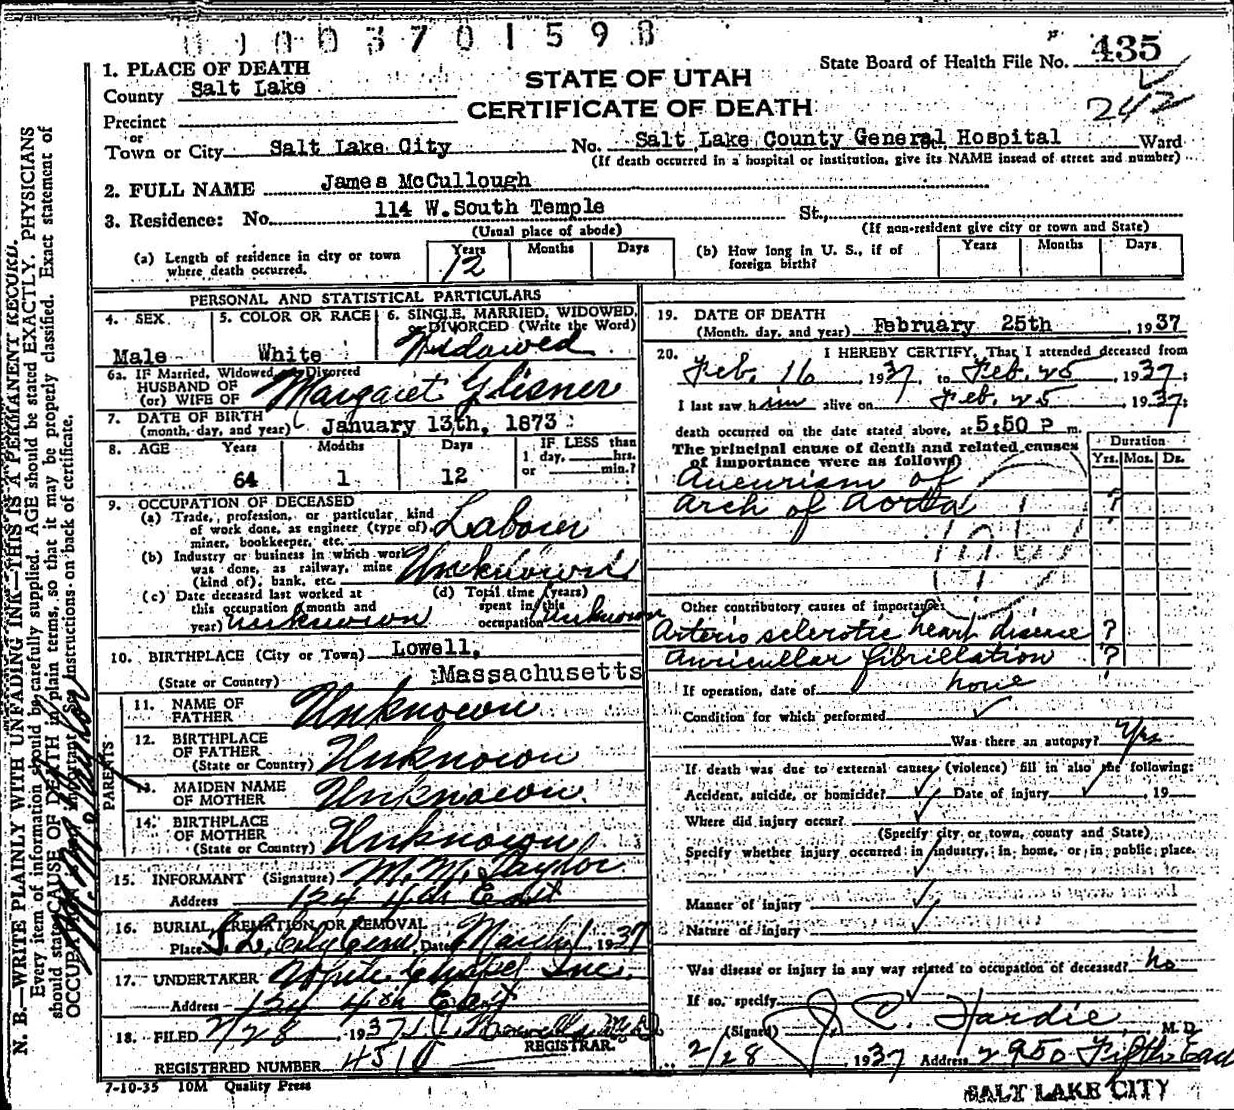 State Board of Health File No. 435
242
STATE OF UTAH
CERTIFICATE OF DEATH
1. PLACE OF DEATH
County Salt Lake
Precinct
or
Town or City Salt Lake City No. Salt Lake County General Hospital Ward
(If death occurred in a hospital or institution, give its NAME insead of street and number)
2. FULL NAME James McCullough
3. Residence: No. 114 W. South Temple St.,
(Usual place of abode) (If non-resident give city or town and State)
(a) Length of residence in city or town where death occurred. Years 12 Months Days
(b) How long in U. S., if of foreign birth? Years Months Days
PERSONAL AND STATISTICAL PARTICULARS
4. SEX Male
5. COLOR OR RACE White
6. SINGLE, MARRIED, WIDOWED, DIVORCED (Write the Word) Widowed
6a. IF Married, Widowed, or Divorced
HUSBAND OF
(or) WIFE OF Margaret Glisner
7. DATE OF BIRTH
(month, day, and year) January 13th, 1873
8. AGE Years 64 Months 1 Days 12 IF LESS than 1 day, hrs. or min.?
9. OCCUPATION OF DECEASED
(a) Trade, profession, or particular kind of work done, as engineer (type of), miner, bookkeeper, etc. Laborer
(b) Industry or business in which work was done, as railway, mine (kind of), bank, etc. Unknown
(c) Date deceased last worked at this occupation (month and year) unknown
(d) Total time (years) spent in this occupation Unknown
10. BIRTHPLACE (City or Town) Lowell,
(State or Country) Massachusetts
PARENTS
11. NAME OF FATHER Unknown
12. BIRTHPLACE OF FATHER (State or Country) Unknown
13. MAIDEN NAME OF MOTHER Unknown
14. BIRTHPLACE OF MOTHER (State or Country) Unknown
15. INFORMANT (Signature) M. M. Taylor
Address 124 4th East
16. BURIAL, CREMATION OR REMOVAL
Place S. L. City Cem Date March 1, 1937
17. UNDERTAKER White Chapel Inc.
Address 134 4th East
18. FILED 2/28, 1937
REGISTRAR.
REGISTERED NUMBER 4310
7-10-35 10M Quality Press
19. DATE OF DEATH
(Month, day, and year) February 25th, 1937
20. I HEREBY CERTIFY, That I attended deceased from
Feb. 16, 1937, to Feb. 25, 1937;
I last saw him alive on Feb. 25, 1937;
death occurred on the date stated above, at 5:50 P m.
The principal cause of death and related causes of importance were as follows Duration
Yrs. Mos. Ds.
Aneurism of
Arch of Aorta ?
Other contributory causes of importance:
Arterio sclerotic heart disease ?
Auricullar fibrillation ?
If operation, date of none
Condition for which performed
Was there an autopsy? Yes
If death was due to external causes (violence) fill in also the following:
Accident, suicide, or homicide? Date of injury, 19
Where did injury occur?
(Specify city or town, county and State)
Specify whether injury occurred in industry, in home, or in public place.
Manner of injury
Nature of injury
Was disease or injury in any way related to occupation of deceased? no
If so, specify
(Signed) J. C. Hardie, M. D.
2/28 1937 Address 2950 Fifth East
SALT LAKE CITY
N. B.—WRITE PLAINLY WITH UNFADING INK—THIS IS A PERMANENT RECORD.
Every item of information should be carefully supplied. AGE should be stated EXACTLY. PHYSICIANS
should state CAUSE OF DEATH in plain terms, so that it may be properly classified. Exact statement of
OCCUPATION is very important. See instructions on back of certificate.